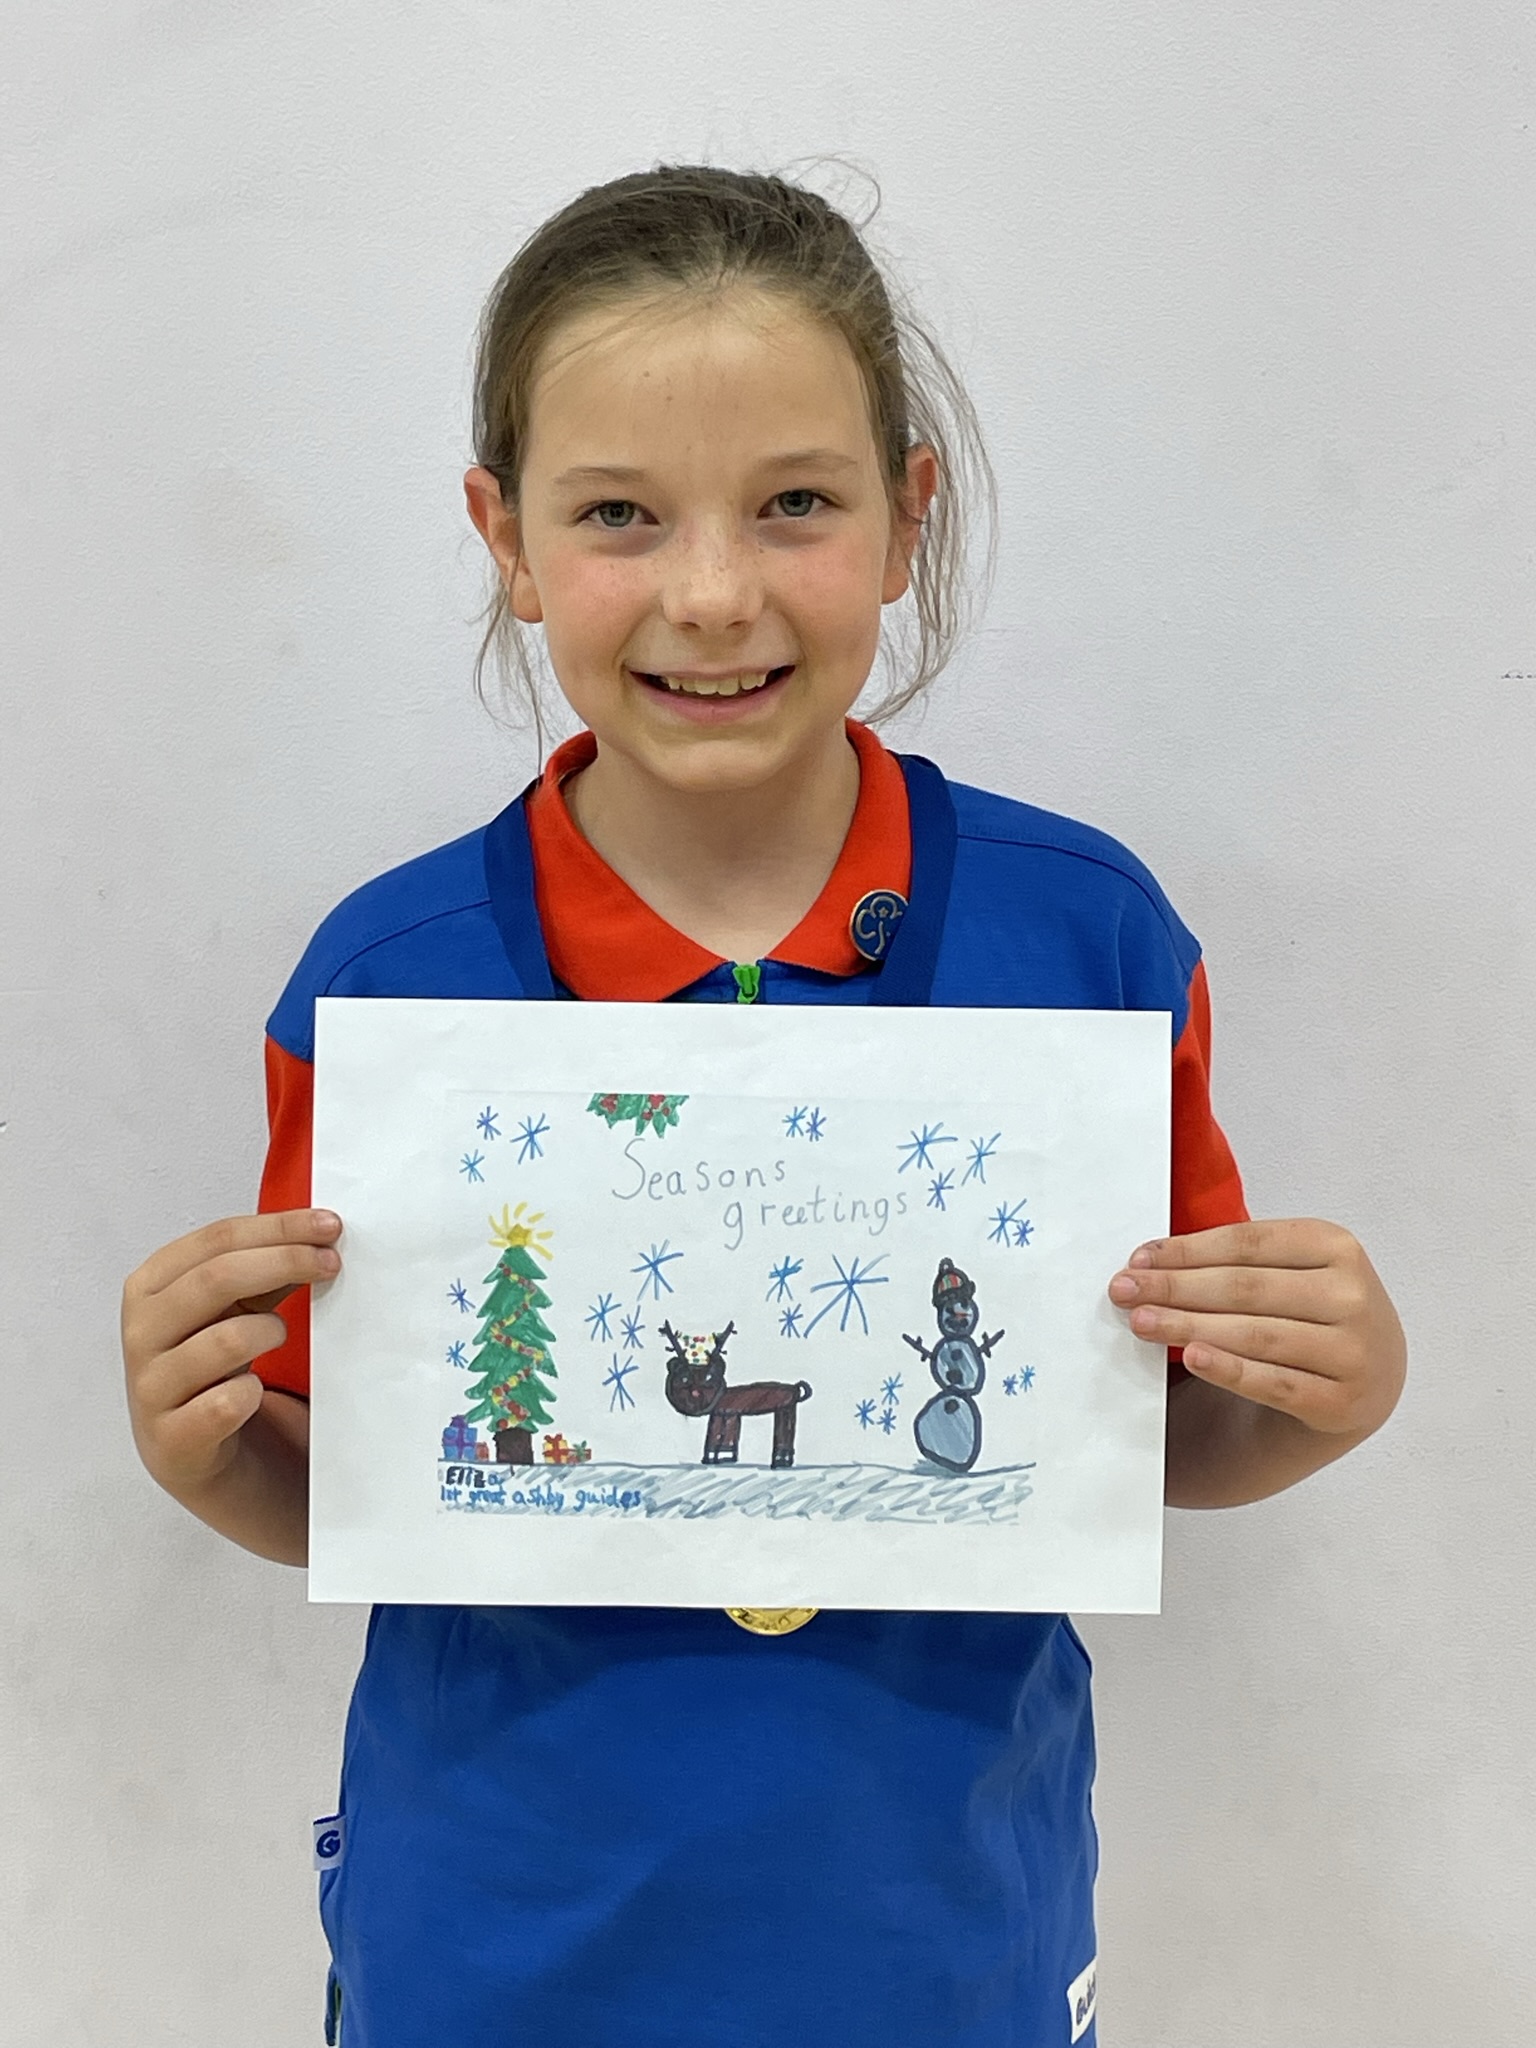 Seasons
greetings
Eliza
1st great ashby guides
G